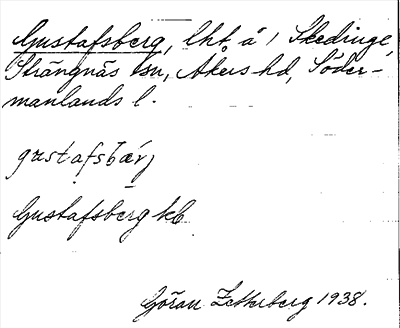 Gustafsberg, lht å 1 Skedinge,
Strängnäs lsn, Åkers hd, Söder-
manlands l.
gustafsbærj
Gustafsberg kb
Göran Zetterberg 1938.